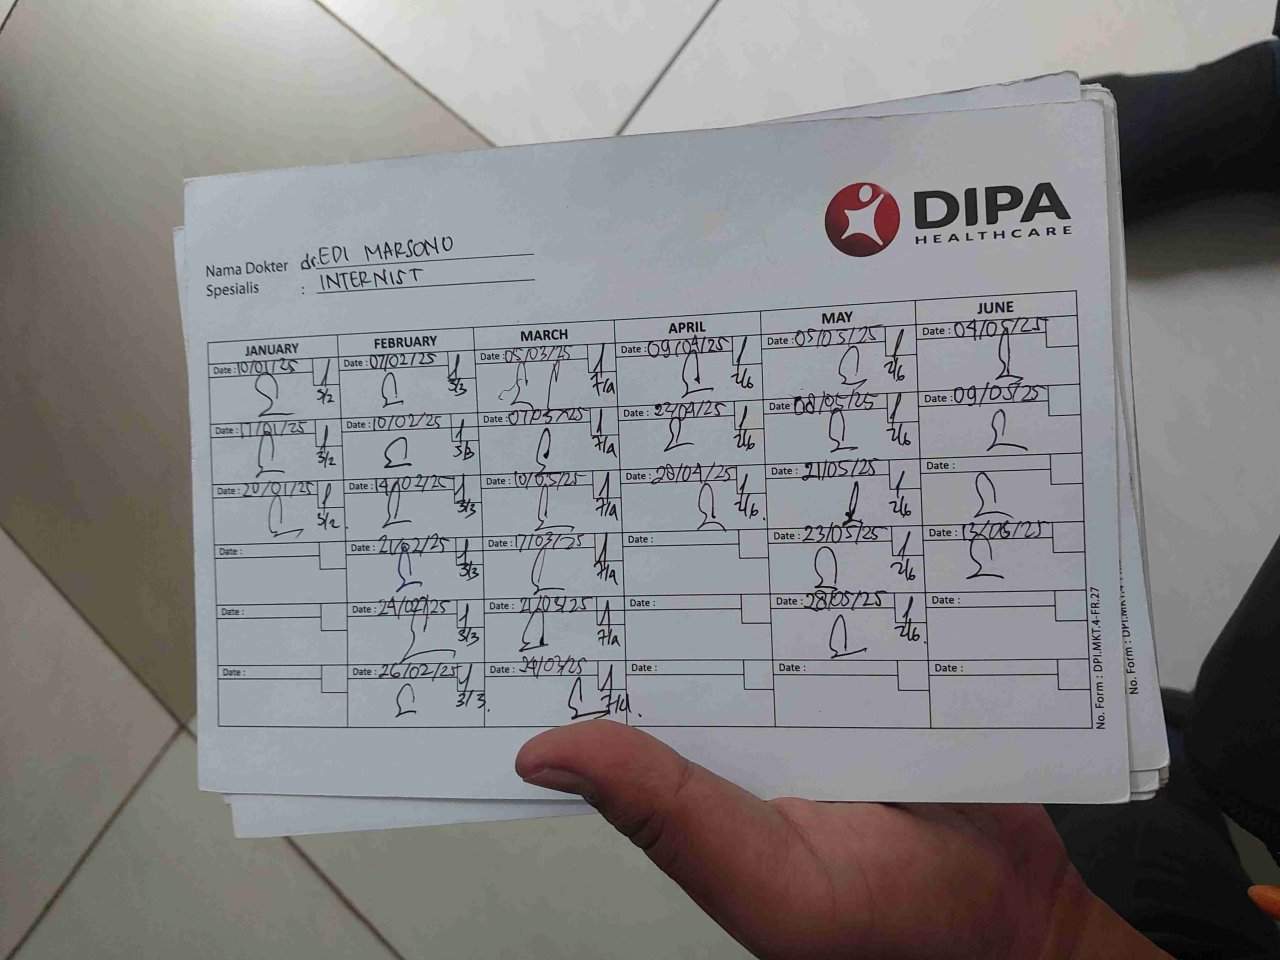 DIPA
HEALTHCARE
Nama Dokter dr. EDI MARSONO
Spesialis : INTERNIST
JANUARY FEBRUARY MARCH APRIL MAY JUNE
Date : 10/01/25 Date : 07/02/25 Date : 05/03/25 Date : 09/04/25 Date : 05/05/25 Date : 04/05/25
3/2 3/3 7/4 2/6 2/6
Date : 17/01/25 Date : 10/02/25 Date : 07/03/25 Date : 22/04/25 Date : 08/05/25 Date : 09/05/25
3/2 3/3 7/4 2/6 2/6
Date : 20/01/25 Date : 14/02/25 Date : 10/03/25 Date : 28/04/25 Date : 21/05/25 Date :
3/2. 3/3 7/4 2/6. 2/6
Date : Date : 21/02/25 Date : 17/03/25 Date : Date : 23/05/25 Date : 13/06/25
3/3 7/4 2/6
Date : Date : 24/02/25 Date : 21/03/25 Date : Date : 28/05/25 Date :
3/3 7/4 2/6.
Date : Date : 26/02/25 Date : 24/03/25 Date : Date : Date :
3/3. 7/4.
No. Form : DPI.MKT.4-FR.27
No. Form : DPI.MKT.4